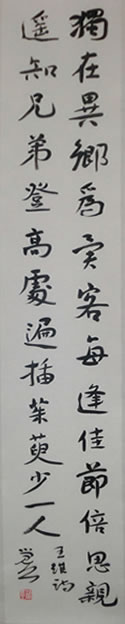 獨在異鄉為異客每逢佳節倍思親
遥知兄弟登高處遍插茱萸少一人
王維詩